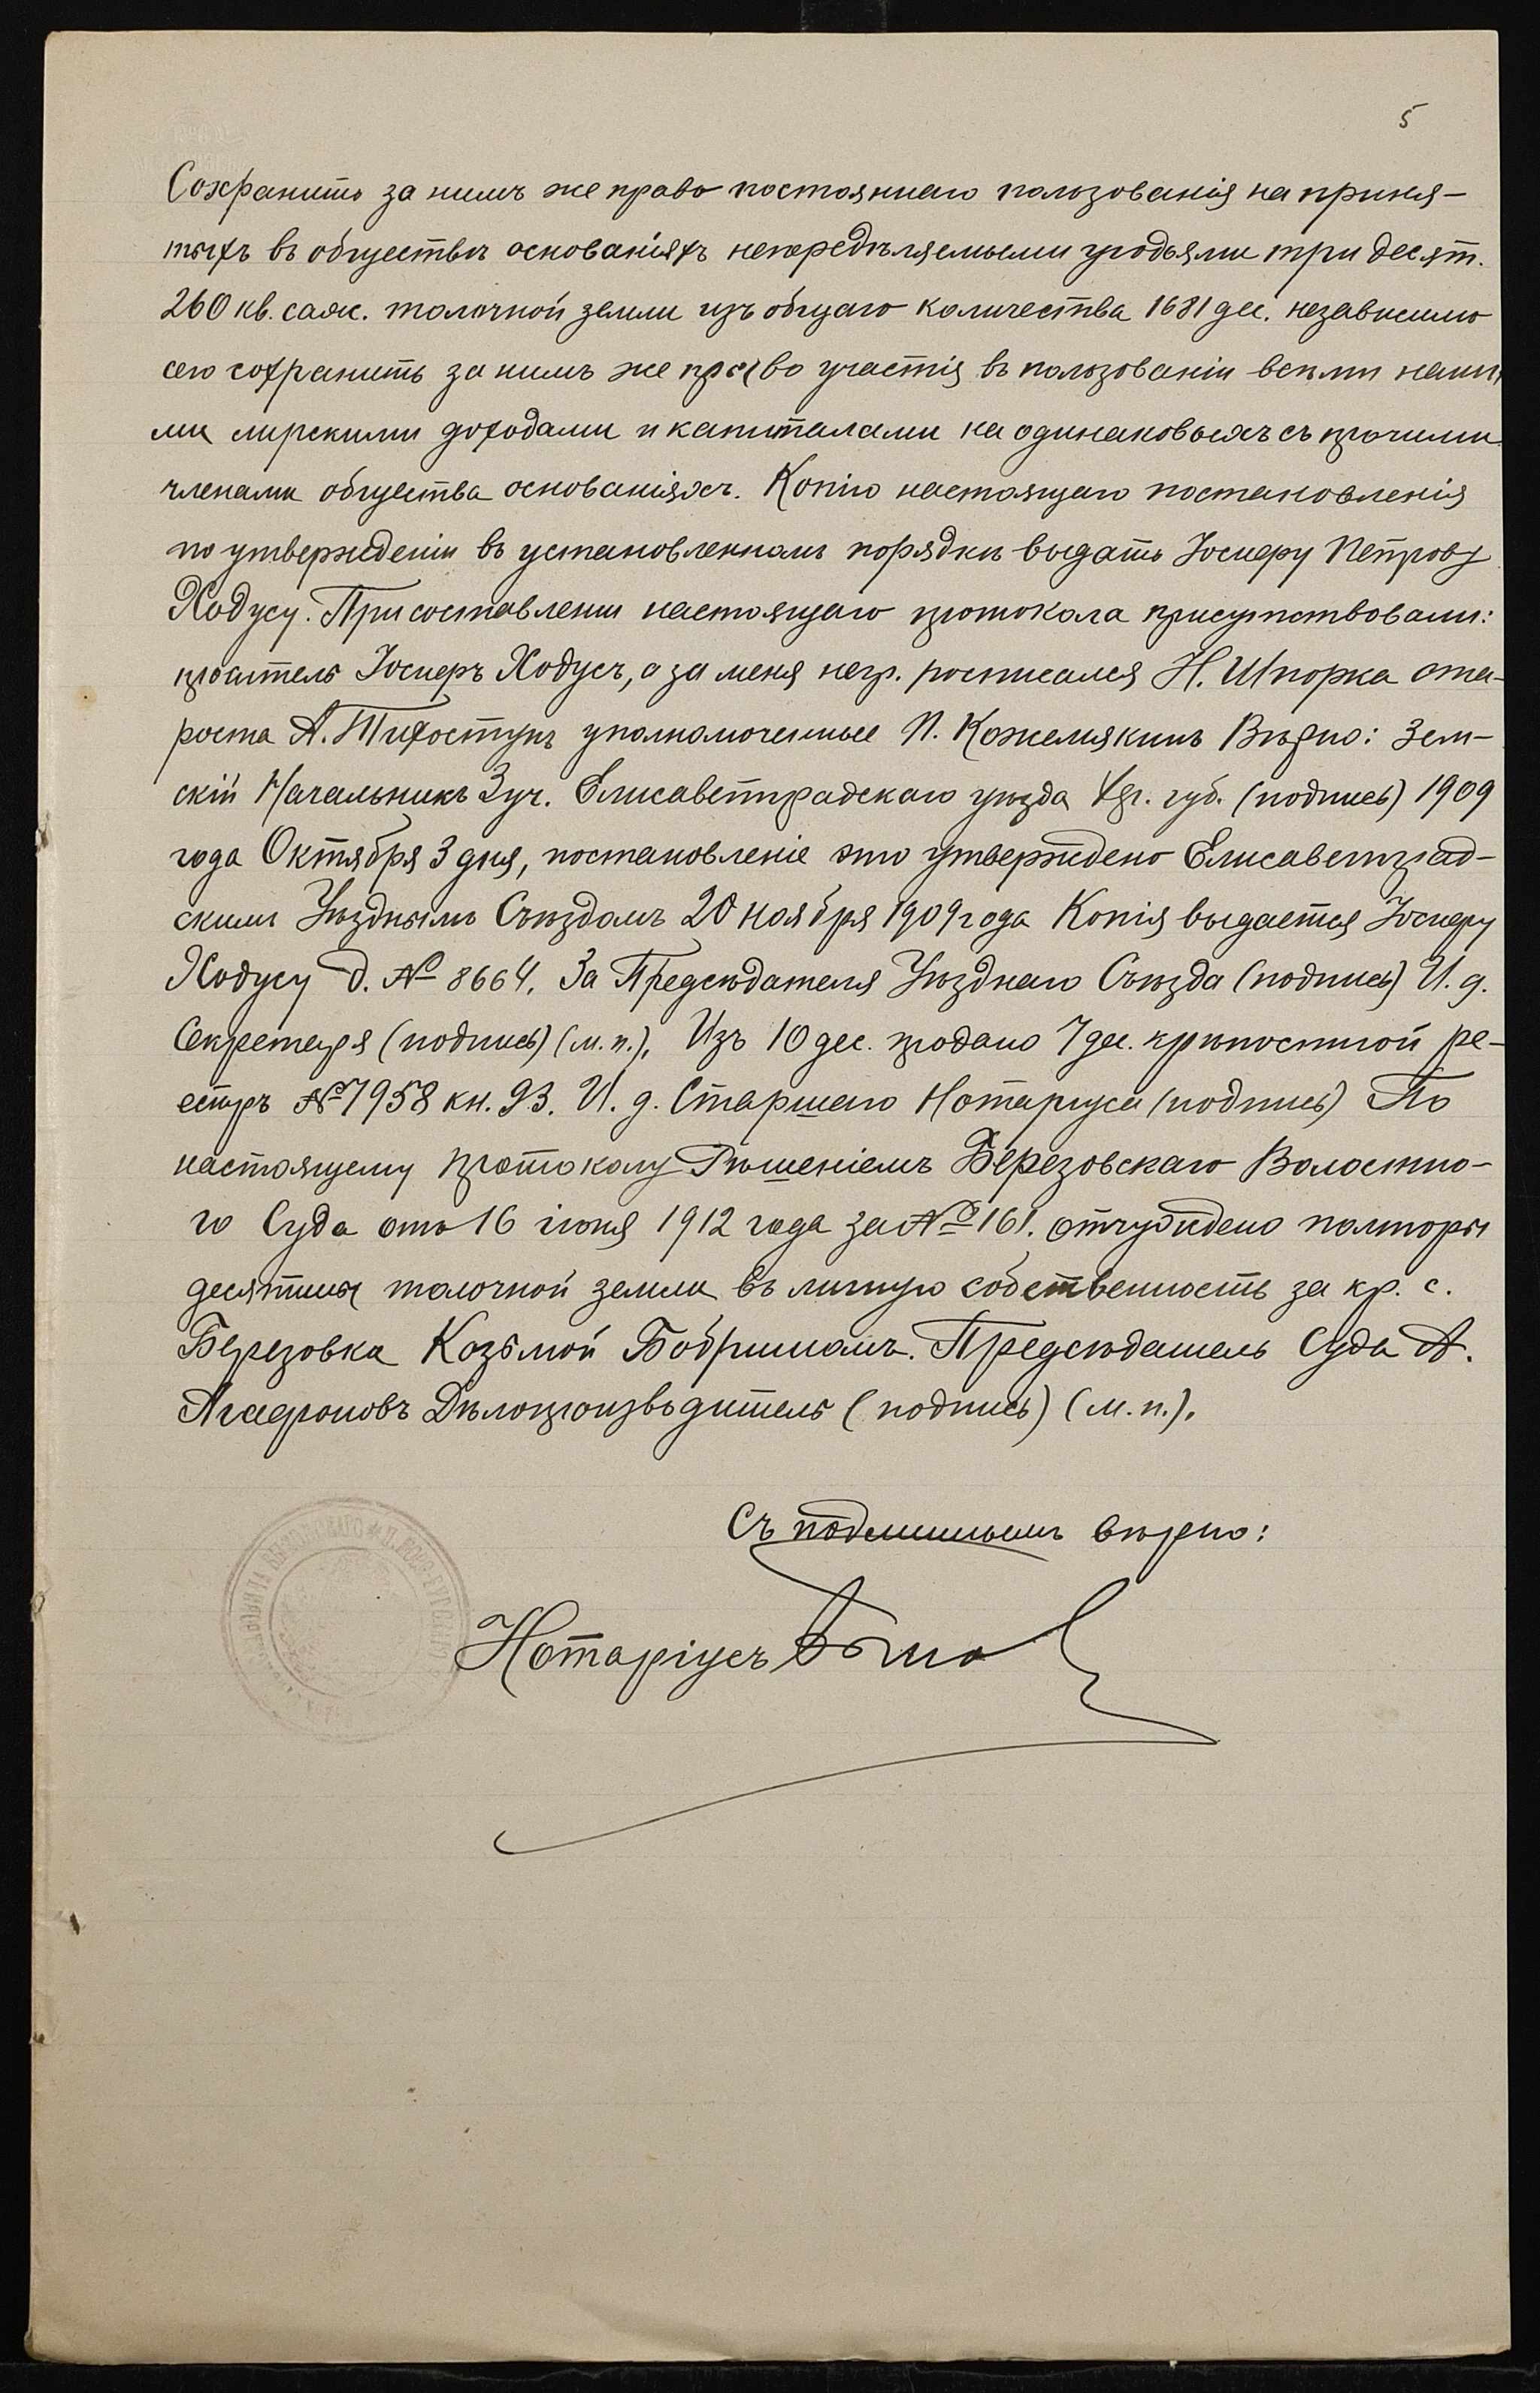 5
Сохранить за нимъ же право постояннаго пользованія на приня-
тыхъ въ обществѣ основаніяхъ непередѣляемыми угодьями три десят.
260 кв. саж. толочной земли изъ общаго количества 1681 дес. независимо
сего сохранить за нимъ же право участія въ пользованіи всѣми наши
ми мирскими доходами и капиталами на одинаковыхъ съ прочими
членами общества основаніяхъ. Копію настоящаго постановленія
по утвержденіи въ установленномъ порядкѣ выдать Іосиеру Петрову
Ходусу. При составленіи настоящаго протокола присутствовали:
проситель Іосиеръ Ходусъ, а за меня негр. росписался Н. Шпорка ста-
роста А. Тихоступъ уполномоченные П. Кожемякинъ Вѣрно: Зем-
скій Начальникъ 3 уч. Елисаветградскаго уѣзда Хер. губ. (подпись) 1909
года Октября 3 дня, постановленіе это утверждено Елисаветград-
скимъ Уѣзднымъ Съѣздомъ 20 ноября 1909 года Копія выдается Іосиеру
Ходусу д. № 8664. За Предсѣдателя Уѣзднаго Съѣзда (подпись) И. д.
Секретаря (подпись) (м. п.). Изъ 10 дес. продано 7 дес. крѣпостной ре-
естръ № 7958 кн. 93. И. д. Старшаго Нотаріуса (подпись) По
настоящему протоколу Рѣшеніемъ Березовскаго Волостно-
го Суда отъ 16 іюня 1912 года за № 161. отчуждено полторы
десятины толочной земли въ личную собственность за кр. с.
Березовка Козьмой Бобринымъ. Предсѣдатель Суда А.
Агафоновъ Дѣлопроизводитель (подпись) (м. п.).
Съ подлиннымъ вѣрно:
Нотаріусъ